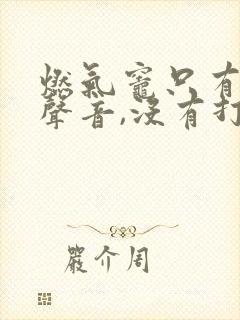 燃氣竈只有
聲音,沒有打
嚴介周